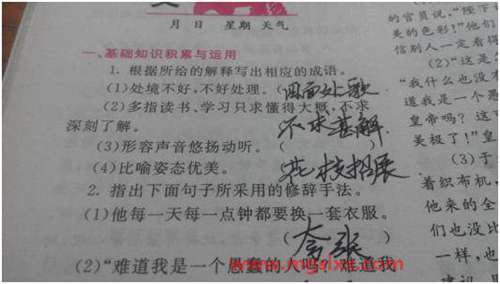 月 日 星期 天气
一、基础知识积累与运用
1. 根据所给的解释写出相应的成语。
(1)处境不好,不好处理。(四面处歌
(2)多指读书、学习只求懂得大概,不求
深刻了解。 不求甚解
(3)形容声音悠扬动听。(
(4)比喻姿态优美。 花枝招展
2. 指出下面句子所采用的修辞手法。
(1)他每一天每一点钟都要换一套衣服。
(夸张
(2)“难道我是一个愚蠢的人吗?难道我
的官员说,“陛下
美的色彩!”他们
信别人一定看得
(2)“这是
“我什么也没
道我是一个愚
皇帝吗?这
美极了!”皇
(3)于
着织布机,
他来的全
们也没比
一样,也